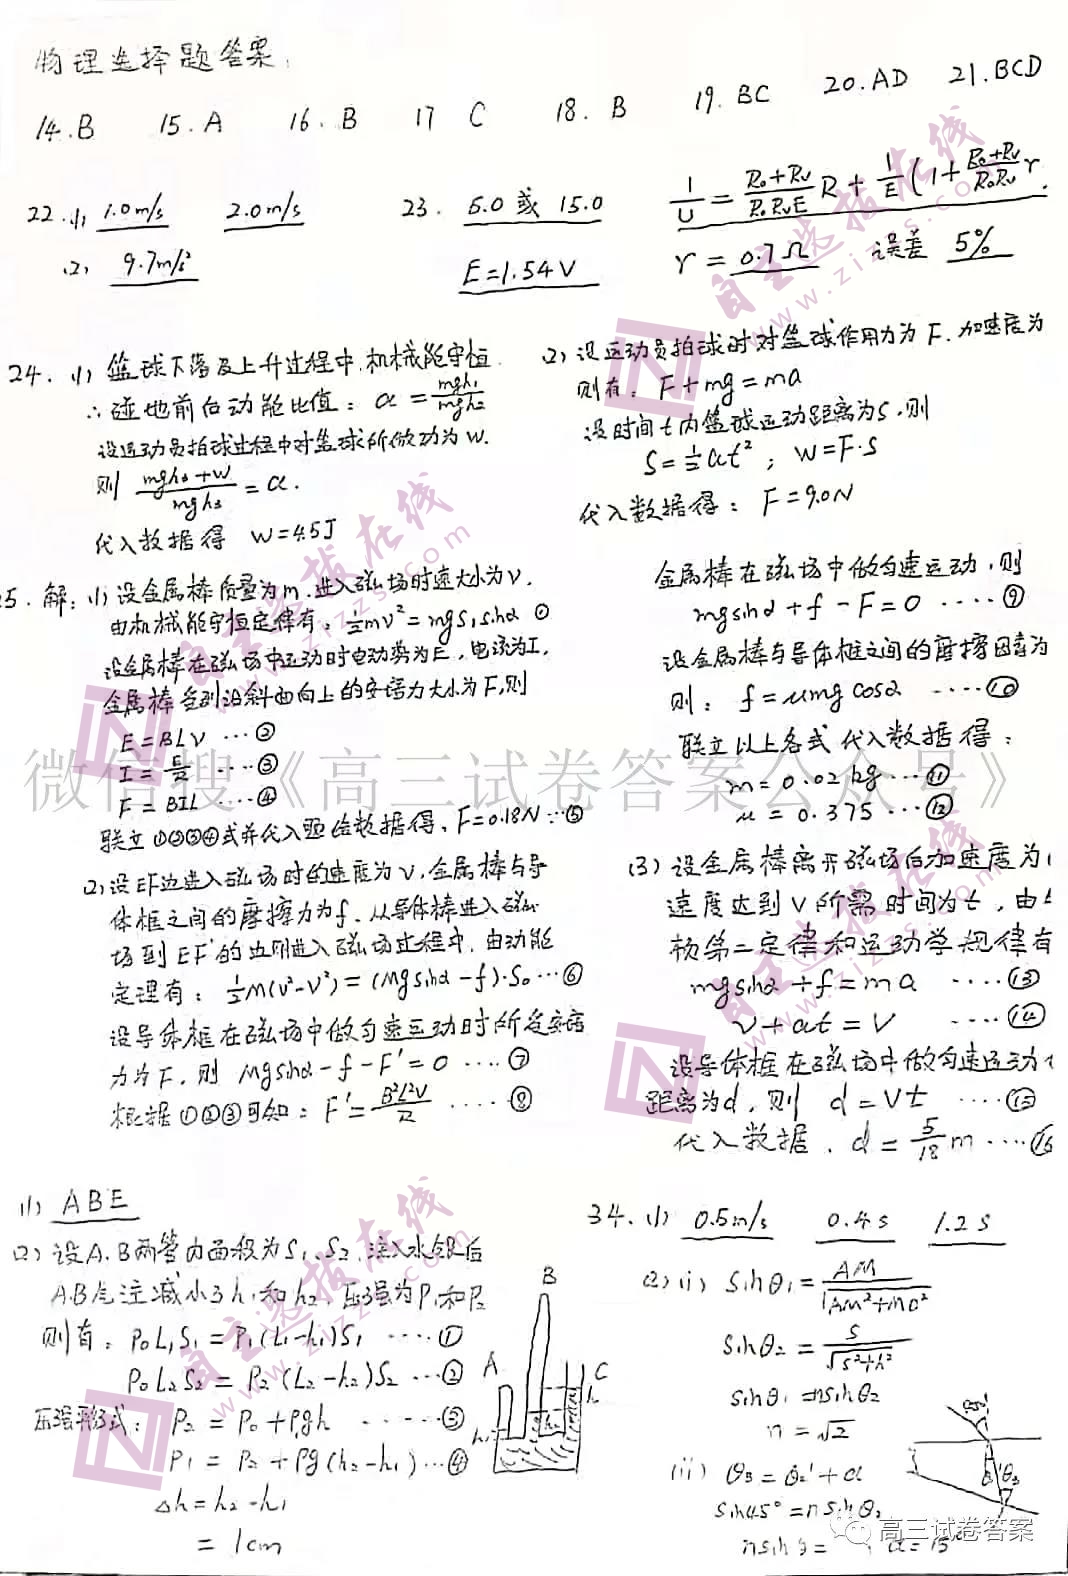 物理选择题答案:
14.B 15.A 16.B 17 C 18.B 19.BC 20.AD 21.BCD
22.(1) 1.0m/s 2.0m/s
(2) 9.7m/s²
23. 5.0或15.0
E=1.54V
1/U = (R₀+Rv)/(R₀RvE) R + 1/E (1+ (R₀+Rv)/(R₀Rv) r
r=0.7Ω 误差 5%
24. (1) 篮球下落及上升过程中,机械能守恒
∴碰地前后动能比值: α = mgh₁/mgh₂
设运动员拍球过程中对篮球所做功为W.
则 (mgh₃+W)/mgh₃ = α.
代入数据得 W=4.5J
(2) 设运动员拍球时对篮球作用力为F.加速度为
则有: F+mg=ma
设时间t内篮球运动距离为S.则
S=½at²; W=F·S
代入数据得: F=9.0N
25.解:(1)设金属棒质量为m.进入磁场时速大小为v.
由机械能守恒定律有: ½mv²=mgS₁sinα ①
设金属棒在磁场中运动时电动势为E,电流为I,
金属棒受到沿斜面向上的安培力大小为F,则
E=BLv …②
I=E/R …③
F=BIL …④
联立①②③④式并代入题给数据得,F=0.18N…⑤
(2)设EF边进入磁场时的速度为V,金属棒与导
体框之间的摩擦力为f.从导体棒进入磁
场到EF的边刚进入磁场过程中,由动能
定理有: ½M(V²-V²)=(Mgsinα-f)·S₀…⑥
设导体框在磁场中做匀速运动时所受安培
力为F,则 Mgsinα-f-F'=0 …⑦
根据①②③可知: F'=B²L²V/R …⑧
金属棒在磁场中做匀速运动,则
mgsinα+f-F=0 …⑨
设金属棒与导体框之间的摩擦因素为
则: f=μmgcosα …⑩
联立以上各式代入数据得:
m=0.02kg…⑪
μ=0.375…⑫
(3)设金属棒离开磁场后加速度为
速度达到V所需时间为t,由
顿第二定律和运动学规律有
mgsinα+f=ma …⑬
v+at=V …⑭
设导体框在磁场中做匀速运动
距离为d,则 d=Vt …⑮
代入数据. d=5/18 m…⑯
(1) ABE
(2)设A.B两管内面积为S₁、S₂,注入水银后
A.B气注减小了h₁和h₂,压强为P₁和P₂
则有: P₀L₁S₁=P₁(L₁-h₁)S₁ …①
P₀L₂S₂=P₂(L₂-h₂)S₂ …②
压强形式: P₂=P₀+ρgh …③
P₁=P₂+ρg(h₂-h₁)…④
Δh=h₂-h₁
=1cm
A B C h h₂ h₁
34.(1) 0.5m/s 0.4s 1.2s
(2)(i) sinθ₁= AM/√(AM²+MO²)
sinθ₂= S/√(S²+h²)
sinθ₁=nsinθ₂
n=√2
(ii) θ₃=θ₂'+α
sin45°=nsinθ₂
α=15°
微信搜《高三试卷答案公众号》
自主选拔在线
www.zizzs.com
自主选拔在线
www.zizzs.com
自主选拔在线
www.zizzs.com
自主选拔在线
www.zizzs.com
自主选拔在线
www.zizzs.com
高三试卷答案